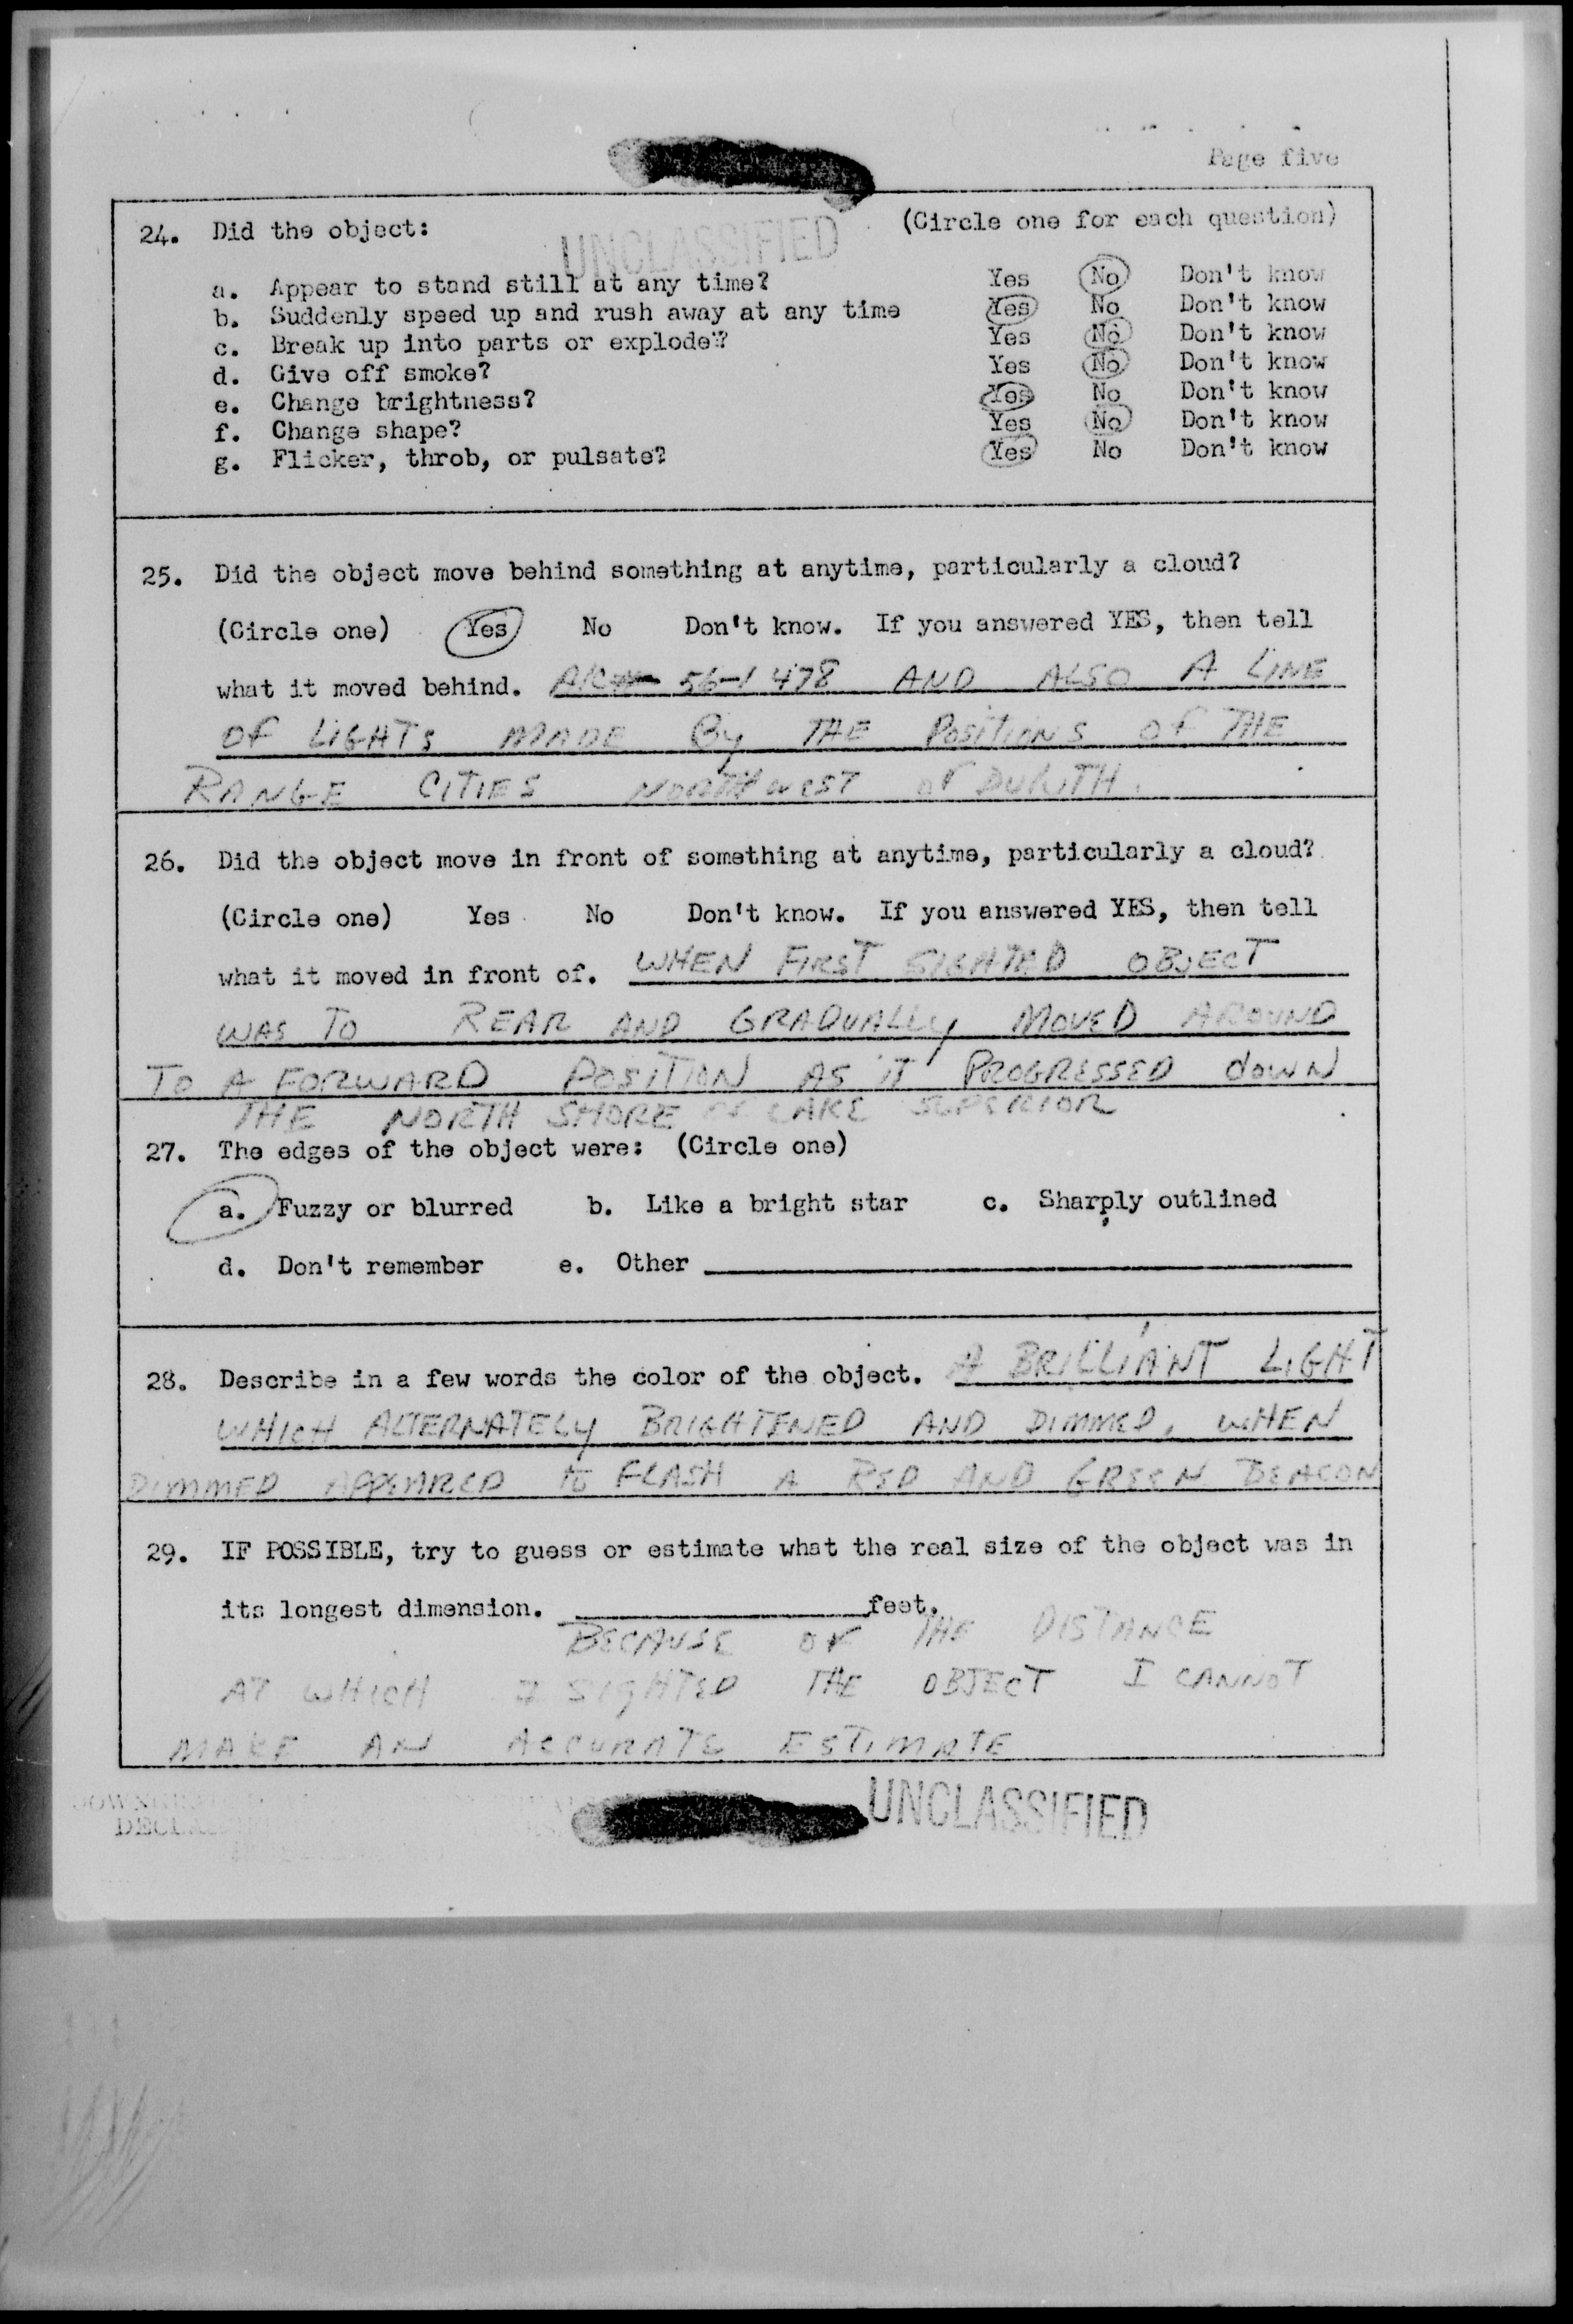 Page five
24. Did the object: (Circle one for each question)
UNCLASSIFIED
a. Appear to stand still at any time? Yes No Don't know
b. Suddenly speed up and rush away at any time Yes No Don't know
c. Break up into parts or explode? Yes No Don't know
d. Give off smoke? Yes No Don't know
e. Change brightness? Yes No Don't know
f. Change shape? Yes No Don't know
g. Flicker, throb, or pulsate? Yes No Don't know
25. Did the object move behind something at anytime, particularly a cloud?
(Circle one) Yes No Don't know. If you answered YES, then tell
what it moved behind. 56-1478 AND ALSO A LINE
OF LIGHTS MADE By THE POSITIONS OF THE
RANGE CITIES NORTHWEST OF DULUTH.
26. Did the object move in front of something at anytime, particularly a cloud?
(Circle one) Yes No Don't know. If you answered YES, then tell
what it moved in front of. WHEN FIRST SIGHTED OBJECT
WAS TO REAR AND GRADUALLY MOVED AROUND
TO A FORWARD POSITION AS IT PROGRESSED DOWN
THE NORTH SHORE OF LAKE SUPERIOR
27. The edges of the object were: (Circle one)
a. Fuzzy or blurred b. Like a bright star c. Sharply outlined
d. Don't remember e. Other
28. Describe in a few words the color of the object. A BRILLIANT LIGHT
WHICH ALTERNATELY BRIGHTENED AND DIMMED, WHEN
DIMMED APPEARED TO FLASH A RED AND GREEN BEACON
29. IF POSSIBLE, try to guess or estimate what the real size of the object was in
its longest dimension. feet.
BECAUSE OF THE DISTANCE
AT WHICH I SIGHTED THE OBJECT I CANNOT
MAKE AN ACCURATE ESTIMATE
UNCLASSIFIED